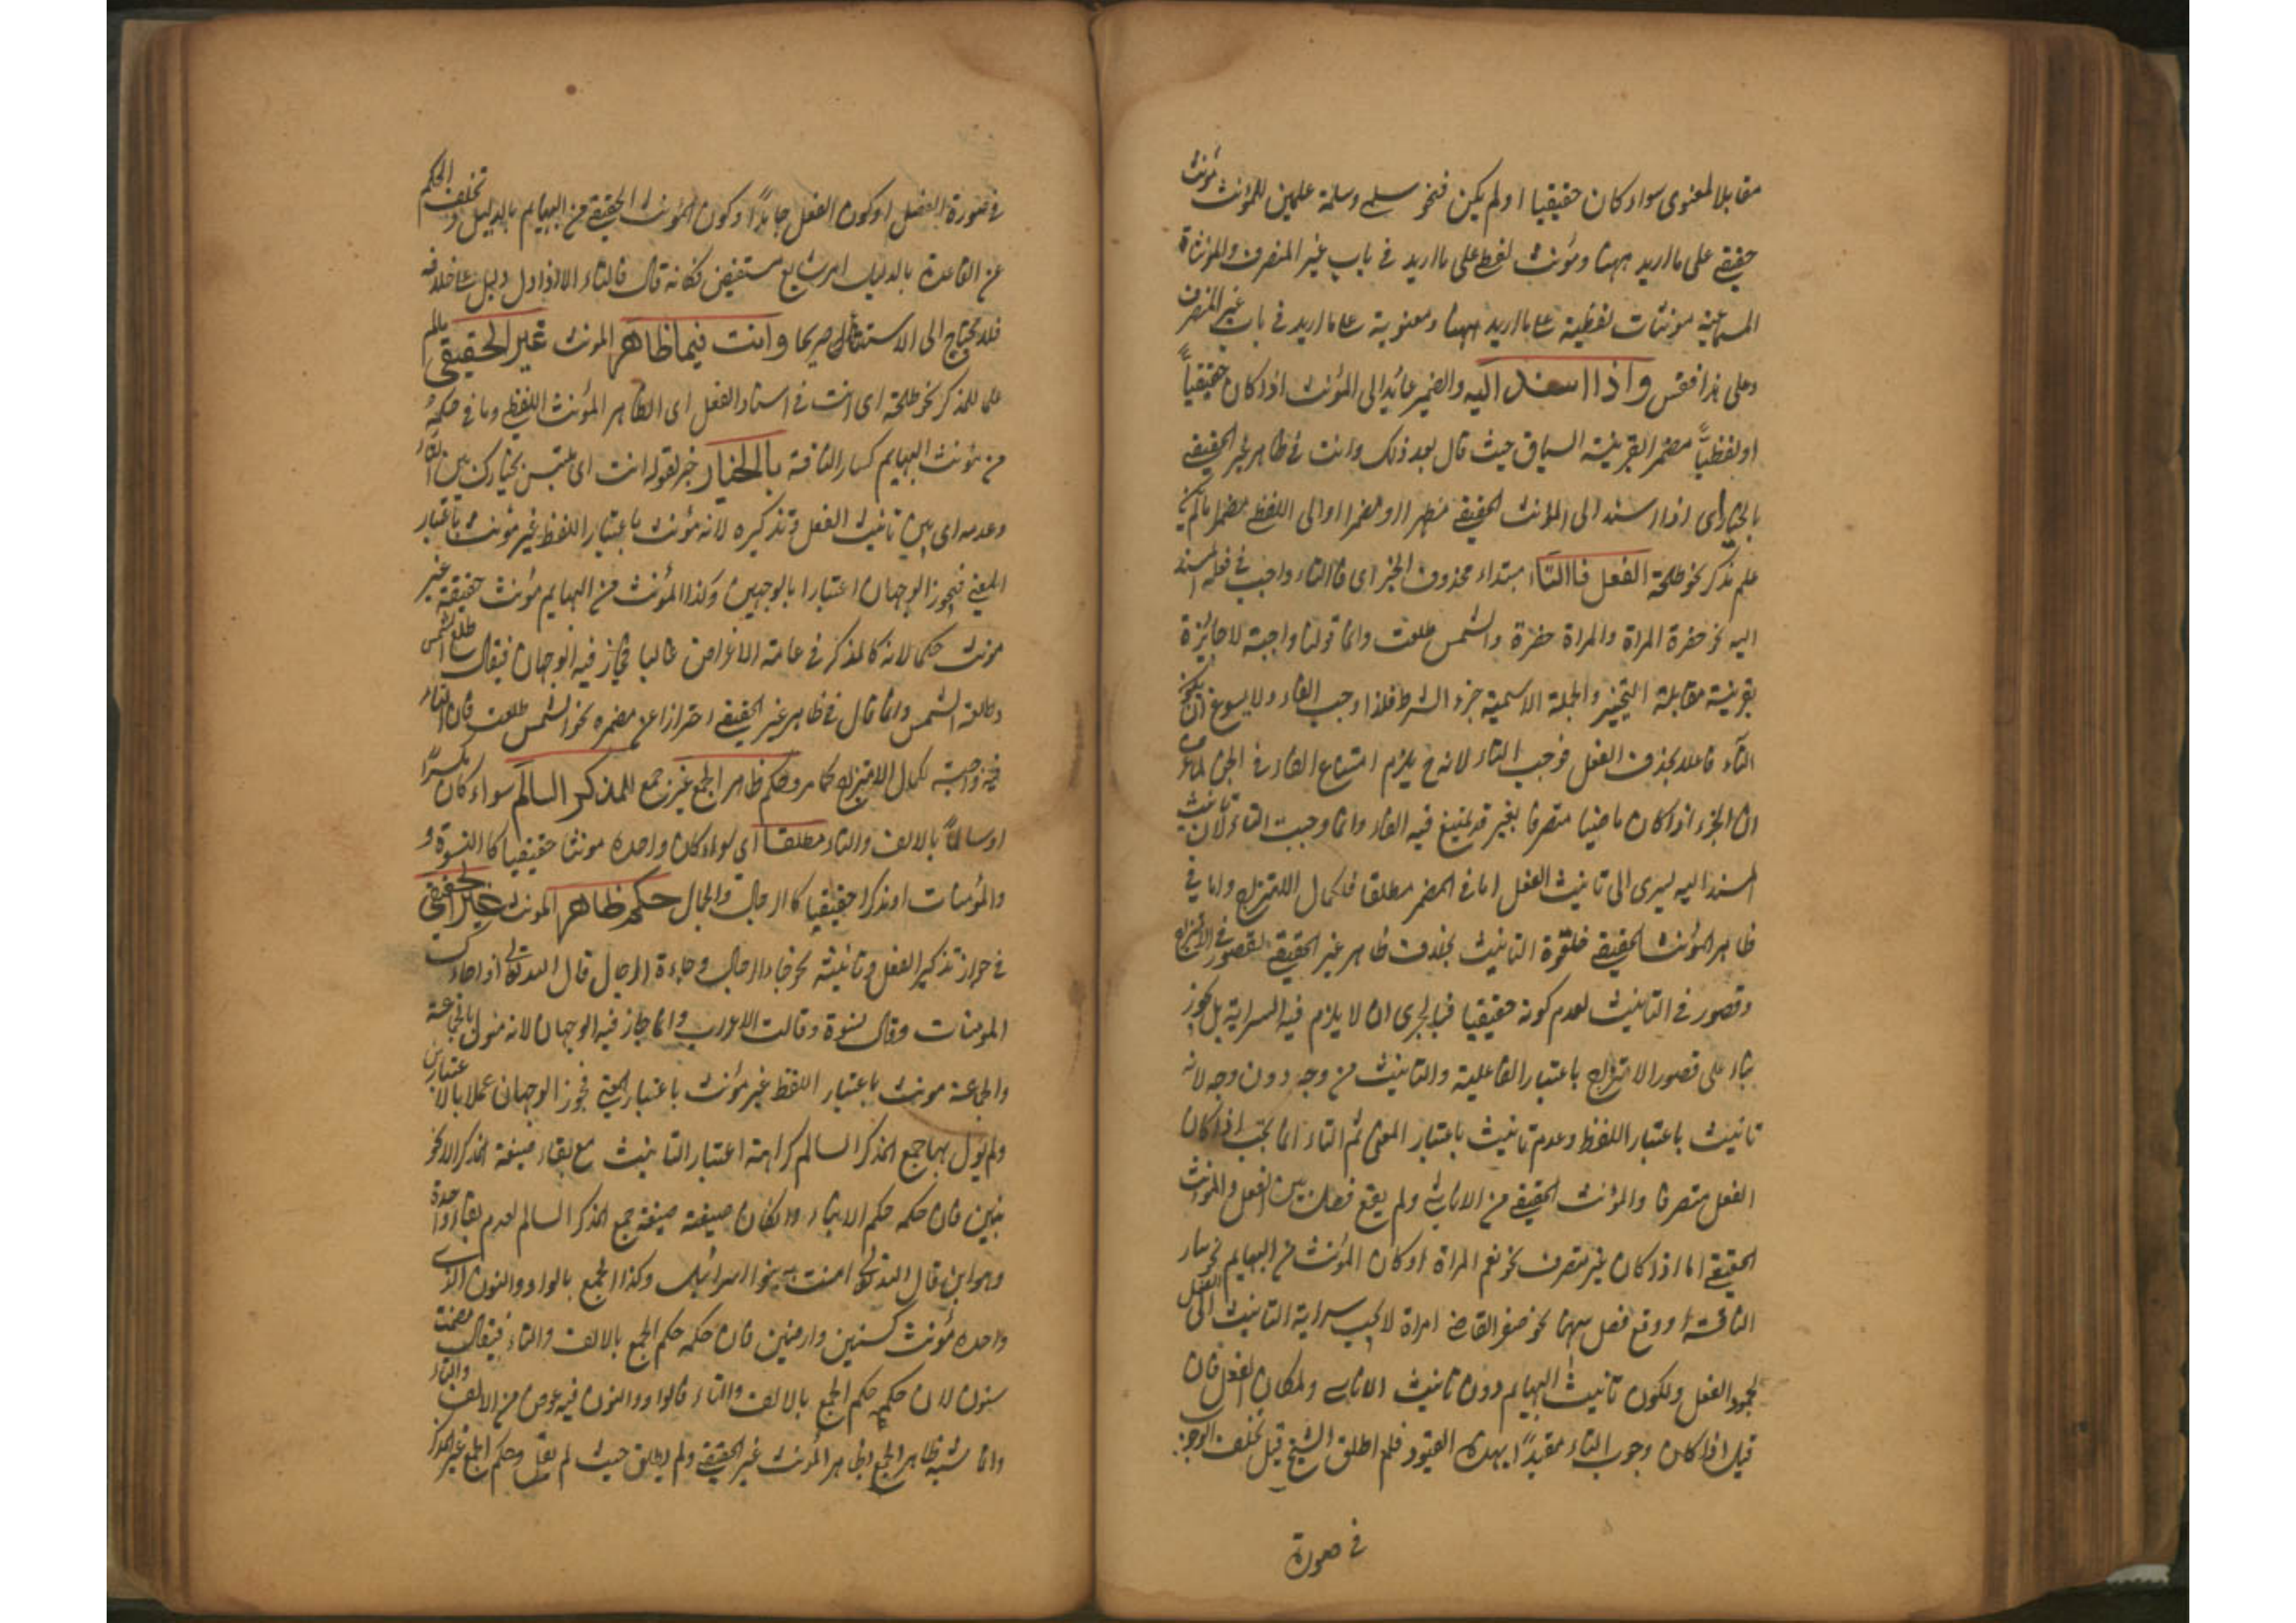 مقابلا لمعنوى سواء كان حقيقيا او لم يكن فنحو سلمى وسلمة علمين للمؤنث مؤنث
حقيقى على ما اريد ههنا ومؤنث لفظى على ما اريد فى باب غير المنصرف والمؤنثات
السماعية مونثات لفظية على ما اريد ههنا ومعنوية على ما اريد فى باب غير المنصرف
وعلى هذا فقس واذا اسند اليه والضمير عائد الى المؤنث اذا كان حقيقياً
او لفظياً مضمرا لقرينة السياق حيث قال بعد ذلك وانت فى ظاهر غير الحقيقى
بالخيار اى اذا اسند الى المؤنث الحقيقى مظهرا او مضمرا او الى اللفظى مضمرا مالم يكن
علم مذكر نحو طلحة الفعل فالتاء مبتداء محذوف الخبر اى فالتاء واجب فى فعل اسند
اليه نحو حضرة المراة والمراة حضرة والشمس طلعت وانما قولنا واجبة لا جايزة
بقرينة مقابلة التخيير والجملة الاسمية جزء الشرط فلذا وجب الفاء ولا يسوغ ان يكون
التاء فاعلا بحذف الفعل فوجب التاء لانه ح يلزم امتناع الفاء فى الجزاء لما عرف
ان الجزاء اذا كان ماضيا متصرفا بغير قد يمتنع فيه الفاء وانما وجبت التاء لان تانيث
المسند اليه يسرى الى تانيث الفعل اما فى المضمر مطلقا فلكمال الامتزاج واما فى
ظاهر المؤنث الحقيقى فلقوة التانيث بخلاف ظاهر غير الحقيقى لقصور فى الامتزاج
وقصور فى التانيث لعدم كونه حقيقيا فبالحرى ان لا يلزم فيه السراية بل يجوز
بناء على قصور الامتزاج باعتبار الفاعلية والتانيث من وجه دون وجه لانه
تانيث باعتبار اللفظ وعدم تانيث باعتبار المعنى ثم التاء انما يجب اذا كان
الفعل متصرفا والمؤنث الحقيقى من الاناسى ولم يقع فصل بين الفعل والمؤنث
الحقيقى اما اذا كان غير متصرف نحو نعم المراة او كان المؤنث من البهايم نحو سار
الناقة او وقع فصل بينهما نحو حضر القاضى امراة لا يجب سراية التانيث الى الفعل
لجمود الفعل ولكون تانيث البهايم دون تانيث الاناسى ولمكان الفصل فان
قيل اذا كان وجوب التاء مقيدًا بهذه القيود فلم اطلق الشيخ قيل تخلف الوجوب
فى صورة
فى صورة الفصل او كون الفعل جامدًا او كون المؤنث الحقيقى من البهايم بالدليل وتخلف الحكم
عن القاعدة بالدليل امر شايع مستفيض فكانه قال فالتاء الا اذا دل دليل على خلافه
فلا يحتاج الى الاستثناء صريحا وانت فيما ظاهر المونث غير الحقيقى مالم
علما للمذكر نحو طلحة اى انت فى اسناد الفعل اى الظاهر المؤنث اللفظى وما فى حكمه
من مؤنث البهايم كسار الناقة بالخيار خبر لقوله انت اى ملتبس بخيارك بين التاء
وعدمه اى بين تانيث الفعل وتذكيره لانه مؤنث باعتبار اللفظ غير مؤنث باعتبار
المعنى فيجوز الوجهان اعتبارا بالوجهين وكذا المؤنث من البهايم مؤنث حقيقة غير
مونث حكما لانه كالمذكر فى عامة الاغراض غالبا فجاز فيه الوجهان فيقال طلع الشمس
وطلعت الشمس وانما قال فى ظاهر غير الحقيقى احترازا عن مضمره نحو الشمس طلعت فان التاء
فيه واجبة لكمال الامتزاج كما مر وحكم ظاهر الجمع غير جمع المذكر السالم سواء كان مكسرًا
او سالماً بالالف والتاء مطلقا اى سواء كان واحده مونثا حقيقيا كالنسوة و
والمؤمنات او مذكرا حقيقيا كالرجال والجمال حكم ظاهر المونث غير الحقيقى
فى جواز تذكير الفعل وتانيثه نحو جاء الرجال وجاءة الرجال قال الله تعالى اذا جاءك
المومنات وقال نسوة وقالت الاعراب وانما جاز فيه الوجهان لانه مئول بالجماعة
والجماعة مونث باعتبار اللفظ غير مؤنث باعتبار المعنى فجوز الوجهان عملا بالاعتبارين
ولم يؤل بها جمع المذكر السالم كراهة اعتبار التانيث مع بقاء صيغة المذكر الا نحو
بنين فان حكمه حكم الابناء وان كان صيغته صيغة جمع المذكر السالم لعدم بقاء واحدة
وهو ابن قال الله تعالى امنت به بنوا اسرائيل وكذا الجمع بالواو والنون الذى
واحده مؤنث كسنين وارضين فان حكمه حكم الجمع بالالف والتاء فيقال مضت
سنون لان حكمه حكم الجمع بالالف والتاء فالواو والنون فيه عوض من الالف والتاء
وانما شبه ظاهر الجمع بظاهر المونث غير الحقيقى ولم يطلق حيث لم يقل وحكم الجمع غير المذكر